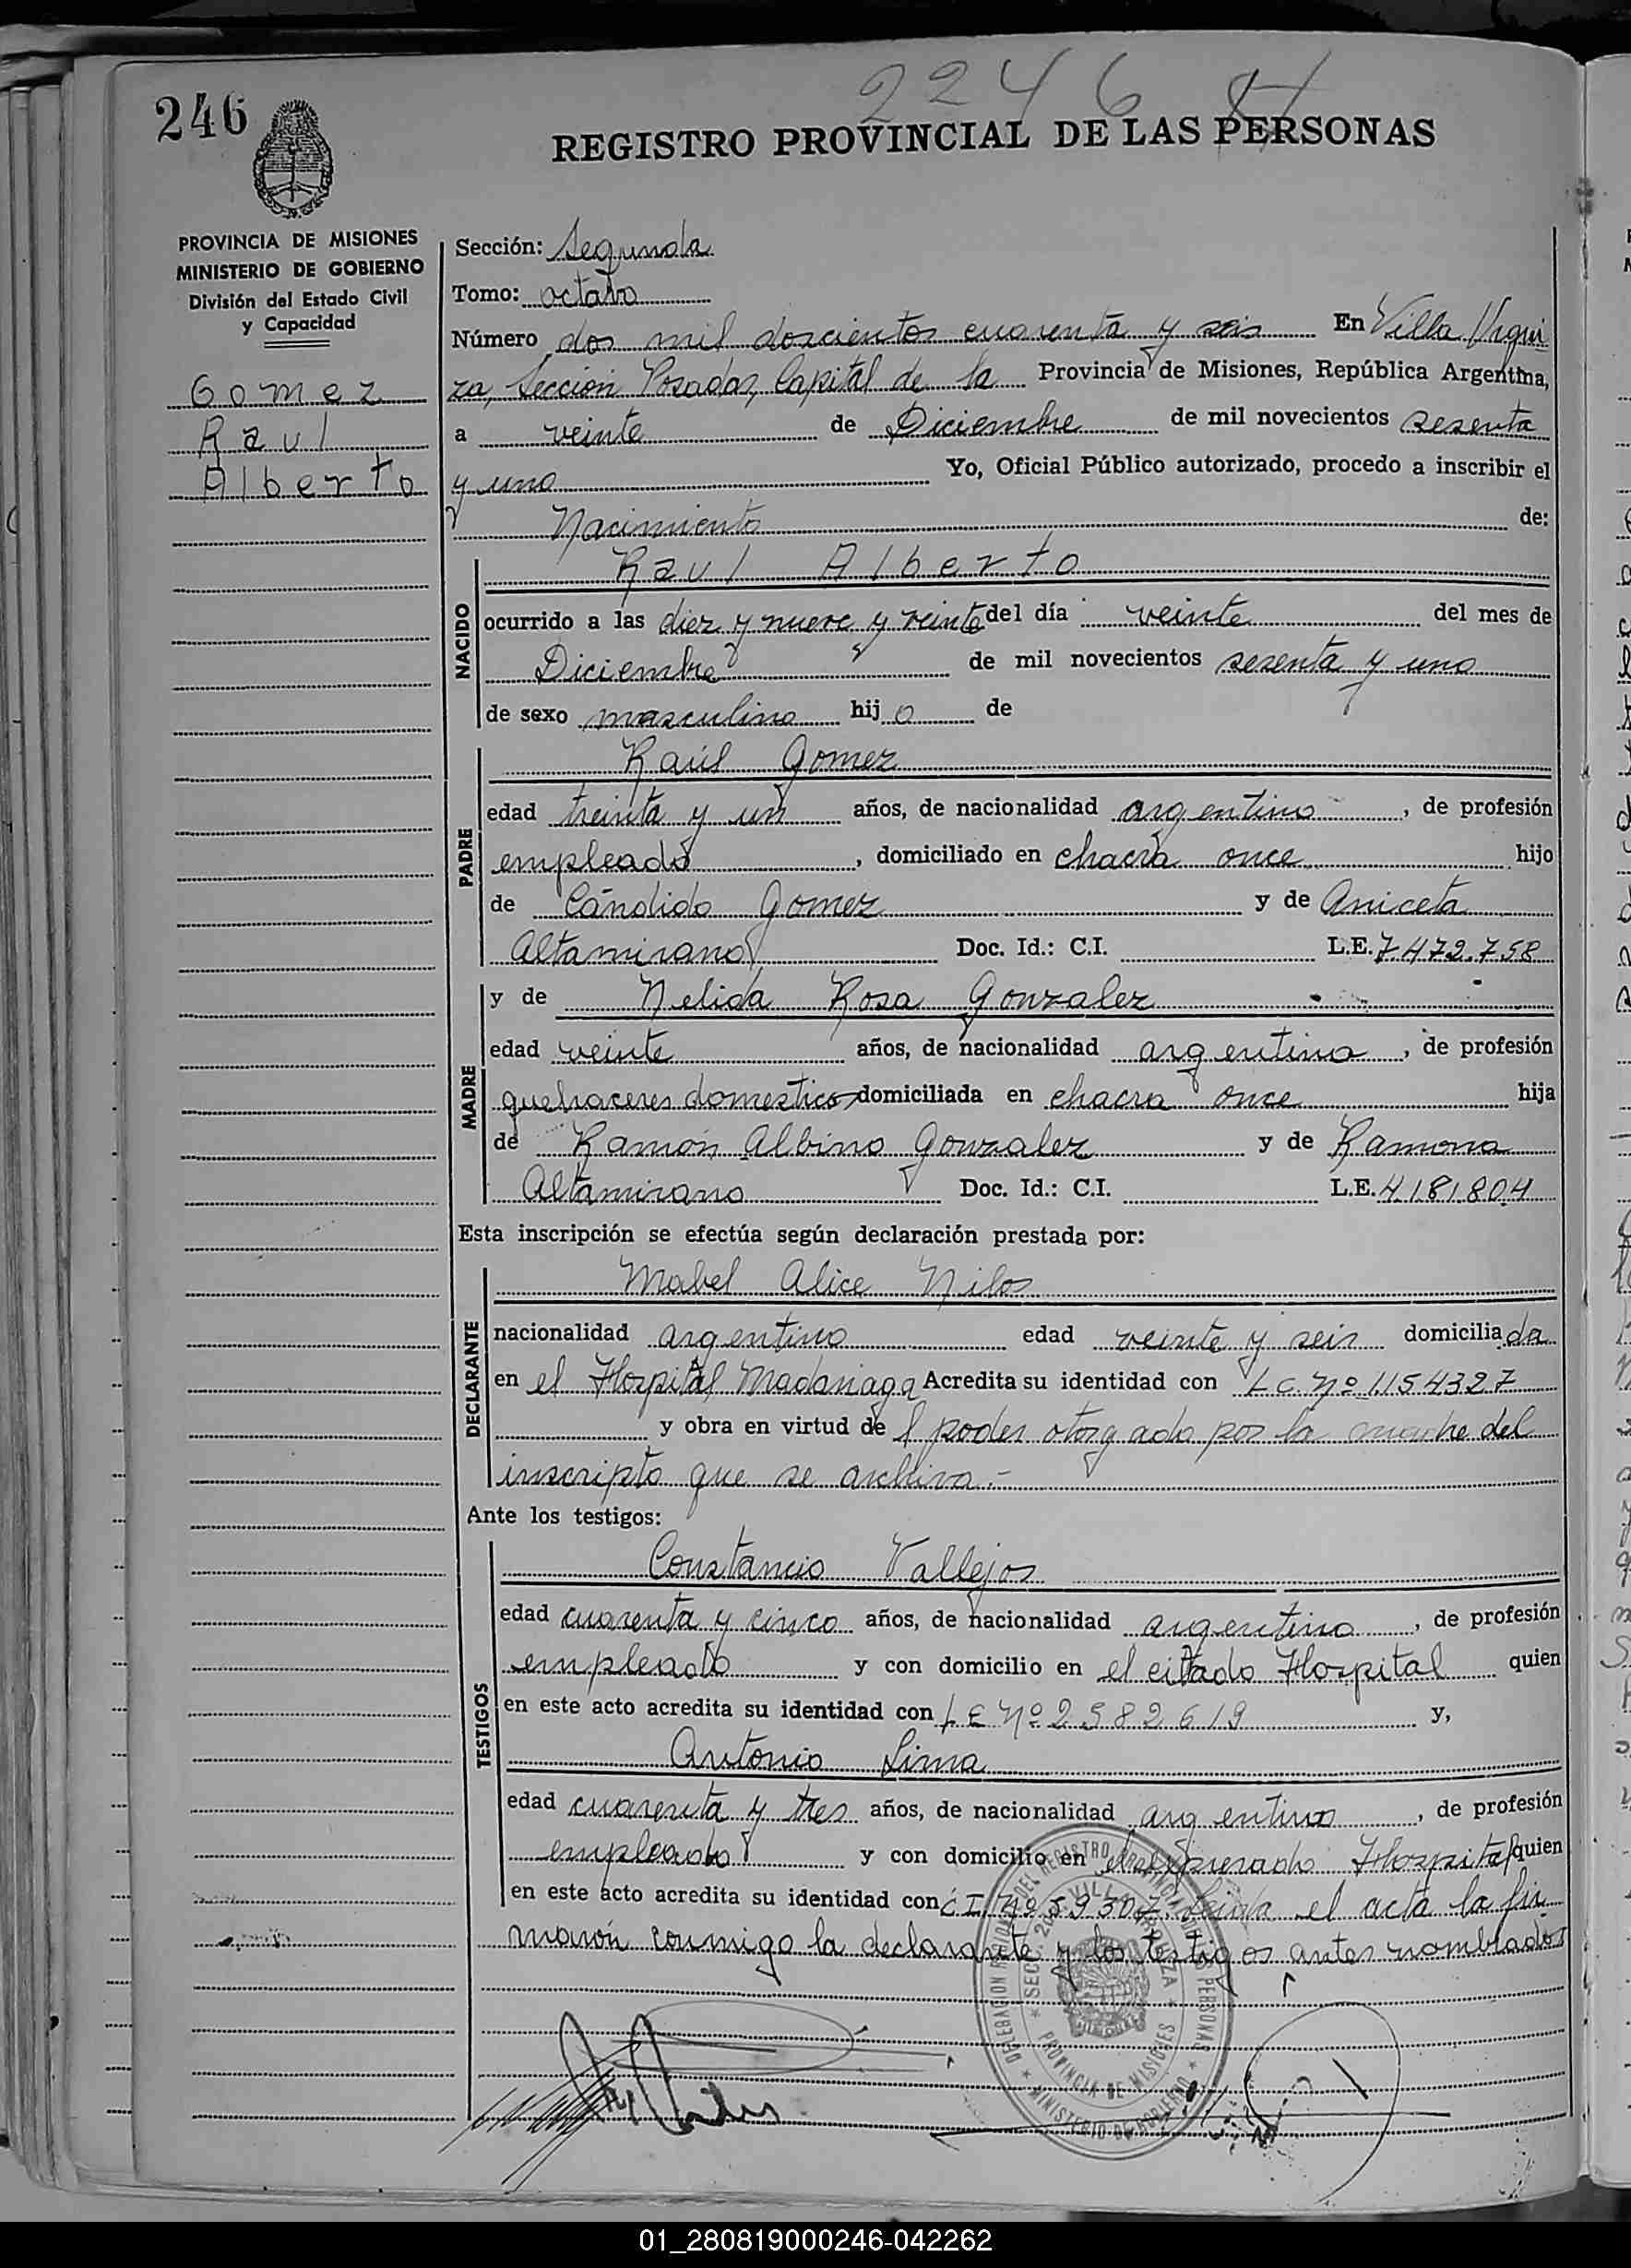 2246
246
REGISTRO PROVINCIAL DE LAS PERSONAS
PROVINCIA DE MISIONES
MINISTERIO DE GOBIERNO
División del Estado Civil
y Capacidad
Gomez
Raul
Alberto
Sección: Segunda
Tomo: octavo
Número dos mil doscientos cuarenta y seis En Villa Urqui
za, Sección Posadas, Capital de la Provincia de Misiones, República Argentina,
a veinte de Diciembre de mil novecientos sesenta
y uno Yo, Oficial Público autorizado, procedo a inscribir el
Nacimiento de:
NACIDO
Raul Alberto
ocurrido a las diez y nueve y veinte del día veinte del mes de
Diciembre de mil novecientos sesenta y uno
de sexo masculino hijo de
PADRE
Raúl Gomez
edad treinta y un años, de nacionalidad argentino, de profesión
empleado, domiciliado en chacra once hijo
de Cándido Gomez y de Aniceta
Altamirano Doc. Id.: C.I. L.E. 7.472.758
MADRE
y de Nelida Rosa Gonzalez
edad veinte años, de nacionalidad argentina, de profesión
quehaceres domesticos, domiciliada en chacra once hija
de Ramón Albino Gonzalez y de Ramona
Altamirano Doc. Id.: C.I. L.E. 4.181.804
Esta inscripción se efectúa según declaración prestada por:
DECLARANTE
Mabel Alice Nilos
nacionalidad argentino edad veinte y seis domiciliada
en el Hospital Madariaga Acredita su identidad con L C Nº 1.154327
y obra en virtud del poder otorgado por la madre del
inscripto que se archiva.-
Ante los testigos:
TESTIGOS
Constancio Vallejos
edad cuarenta y cinco años, de nacionalidad argentino, de profesión
empleado y con domicilio en el citado Hospital quien
en este acto acredita su identidad con L E Nº 2582619 y,
Antonio Lima
edad cuarenta y tres años, de nacionalidad argentino, de profesión
empleado y con domicilio en el Hospital quien
en este acto acredita su identidad con C I Nº 59307. Leida el acta la fir
marón conmigo la declarante y los testigos antes nombrados
DELEGACION DEL REGISTRO PROVINCIAL DE LAS PERSONAS
MINISTERIO DE GOBIERNO
PROVINCIA DE MISIONES
01_280819000246-042262